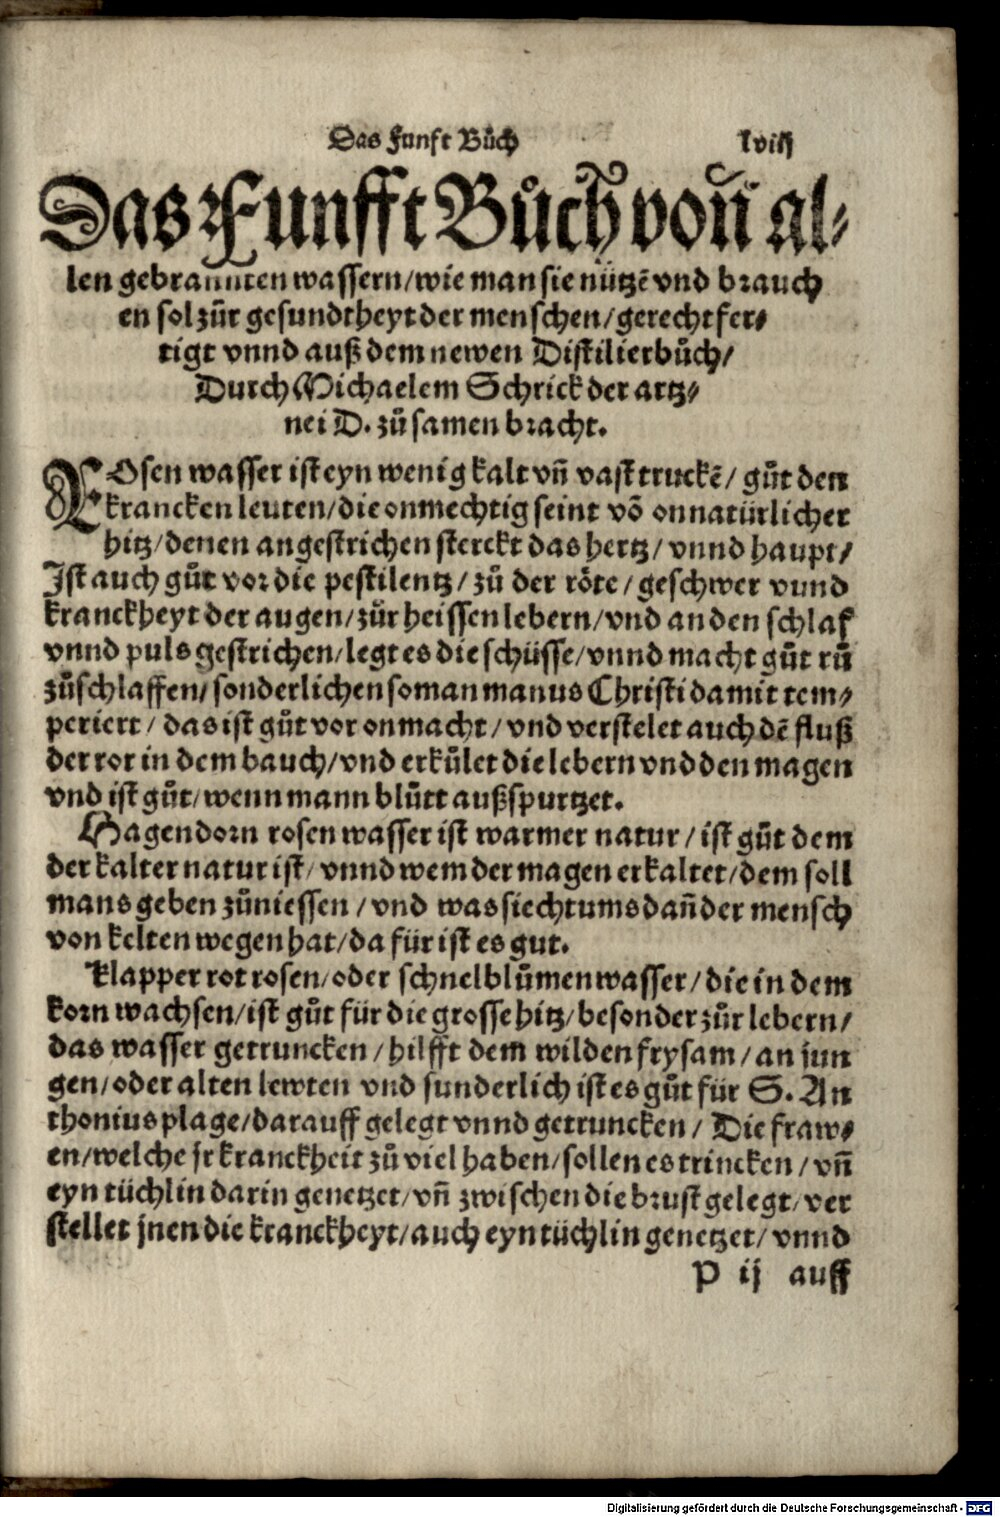 Das Funft Bůch lviij
Das Funfft Bůch voñ al⸗
len gebrannten wassern/wie man sie nützẽ vnd brauch
en sol zůr gesundtheyt der menschen/gerechtfer⸗
tigt vnnd auß dem newen Distilierbůch/
Durch Michaelem Schrick der artz⸗
nei D. zů samen bracht.
ROsen wasser ist eyn wenig kalt vñ vast truckẽ/ gůt den
krancken leuten/die onmechtig seint võ onnatürlicher
hitz/denen angestrichen sterckt das hertz/ vnnd haupt/
Ist auch gůt vor die pestilentz/ zů der röte/geschwer vnnd
kranckheyt der augen/zůr heissen lebern/vnd an den schlaf
vnnd puls gestrichen/legt es die schüsse/vnnd macht gůt rů
zůschlaffen/sonderlichen so man manus Christi damit tem⸗
periert/ das ist gůt vor onmacht/vnd verstelet auch dẽ fluß
der ror in dem bauch/vnd erkůlet die lebern vnd den magen
vnd ist gůt/wenn mann blůtt außspurtzet.
Hagendorn rosen wasser ist warmer natur/ist gůt dem
der kalter natur ist/ vnnd wem der magen erkaltet/dem soll
mans geben zůniessen/vnd was siechtums dañ der mensch
von kelten wegen hat/da für ist es gut.
Klapper rot rosen/oder schnelblůmen wasser/die in dem
korn wachsen/ist gůt für die grosse hitz/besonder zůr lebern/
das wasser getruncken/hilfft dem wilden frysam/an jun
gen/oder alten lewten vnd sunderlich ist es gůt für S. An
thonius plage/darauff gelegt vnnd getruncken/ Die fraw⸗
en/welche jr kranckheit zů viel haben/sollen es trincken/vñ
eyn tüchlin darin genetzet/vñ zwischen die brust gelegt/ver
stellet jnen die kranckheyt/auch eyn tüchlin genetzet/vnnd
P ij auff
Digitalisierung gefördert durch die Deutsche Forschungsgemeinschaft - DFG